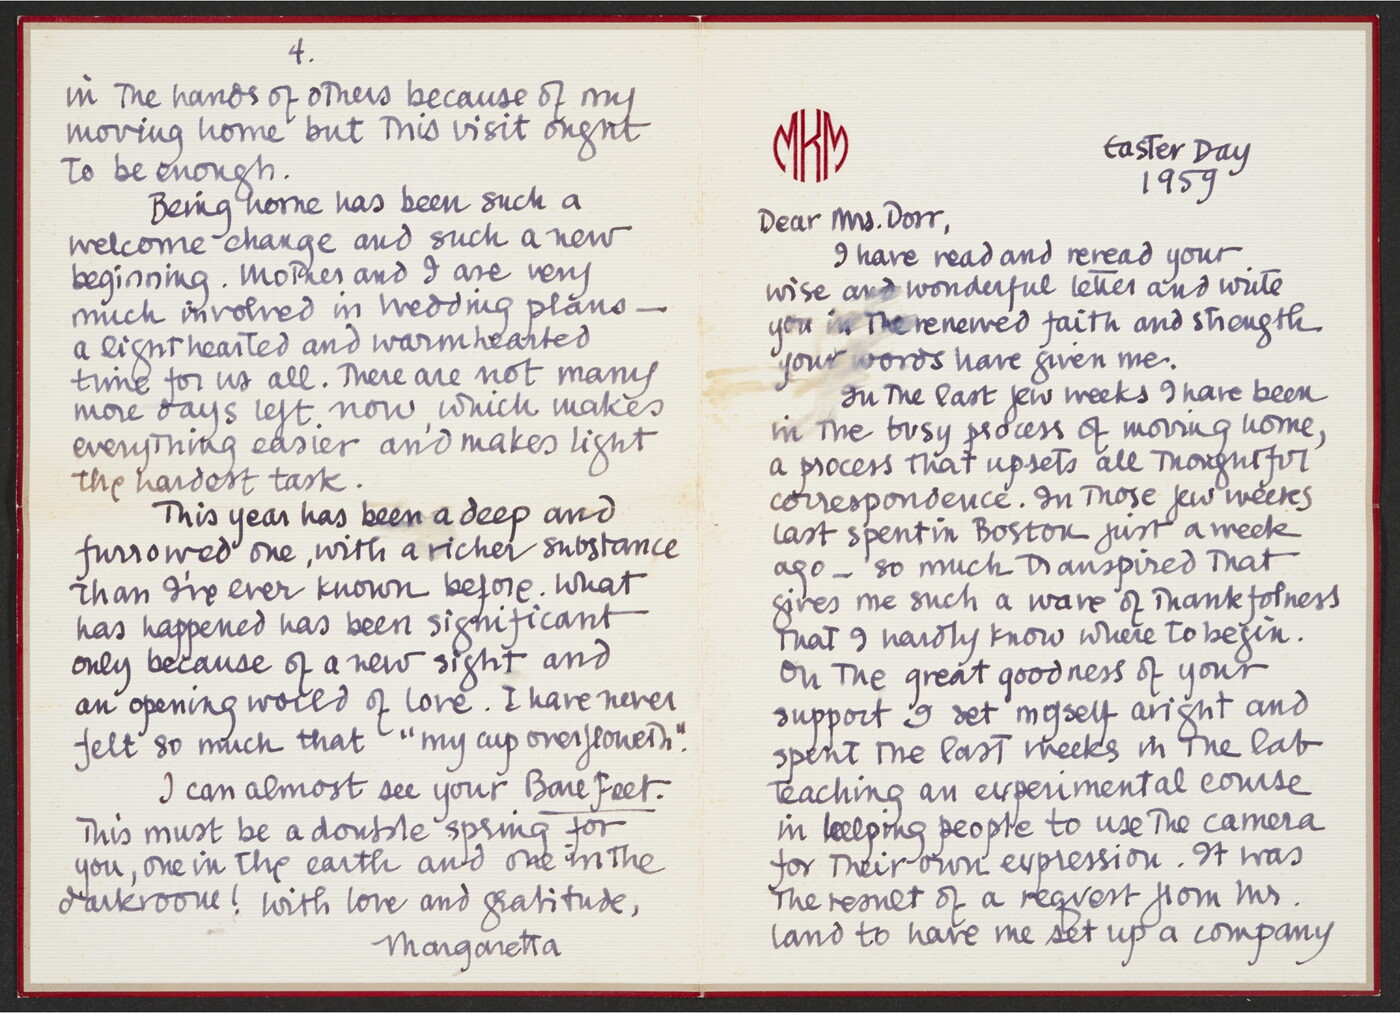 4.
in The hands of others because of my
moving home but This visit ought
To be enough.
Being home has been such a
welcome change and such a new
beginning. Mother and I are very
much involved in wedding plans —
a lighthearted and warmhearted
time for us all. There are not many
more days left now, which makes
everything easier and makes light
the hardest task.
This year has been a deep and
furrowed one, with a richer substance
than I've ever known before. What
has happened has been significant
only because of a new sight and
an opening world of love. I have never
felt so much that "my cup overfloweth".
I can almost see your Bare Feet.
This must be a double spring for
you, one in the earth and one in the
darkroom! With love and gratitude,
Margaretta
MKM
Easter Day
1959
Dear Mrs. Dorr,
I have read and reread your
wise and wonderful letter and write
you in The renewed faith and strength
your words have given me.
In The last few weeks I have been
in The busy process of moving home,
a process that upsets all Thoughtful
correspondence. In Those few weeks
last spent in Boston just a week
ago — so much Transpired That
gives me such a wave of Thankfulness
That I hardly know where to begin.
On The great goodness of your
support I set myself aright and
spent The last weeks in The lab
Teaching an experimental course
in helping people to use The camera
for Their own expression. It was
The result of a request from Mr.
Land to have me set up a company